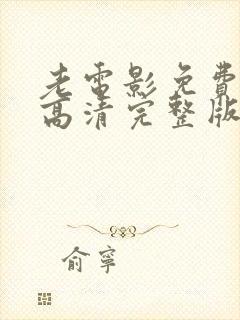 老電影免費
高清完整版
俞寧